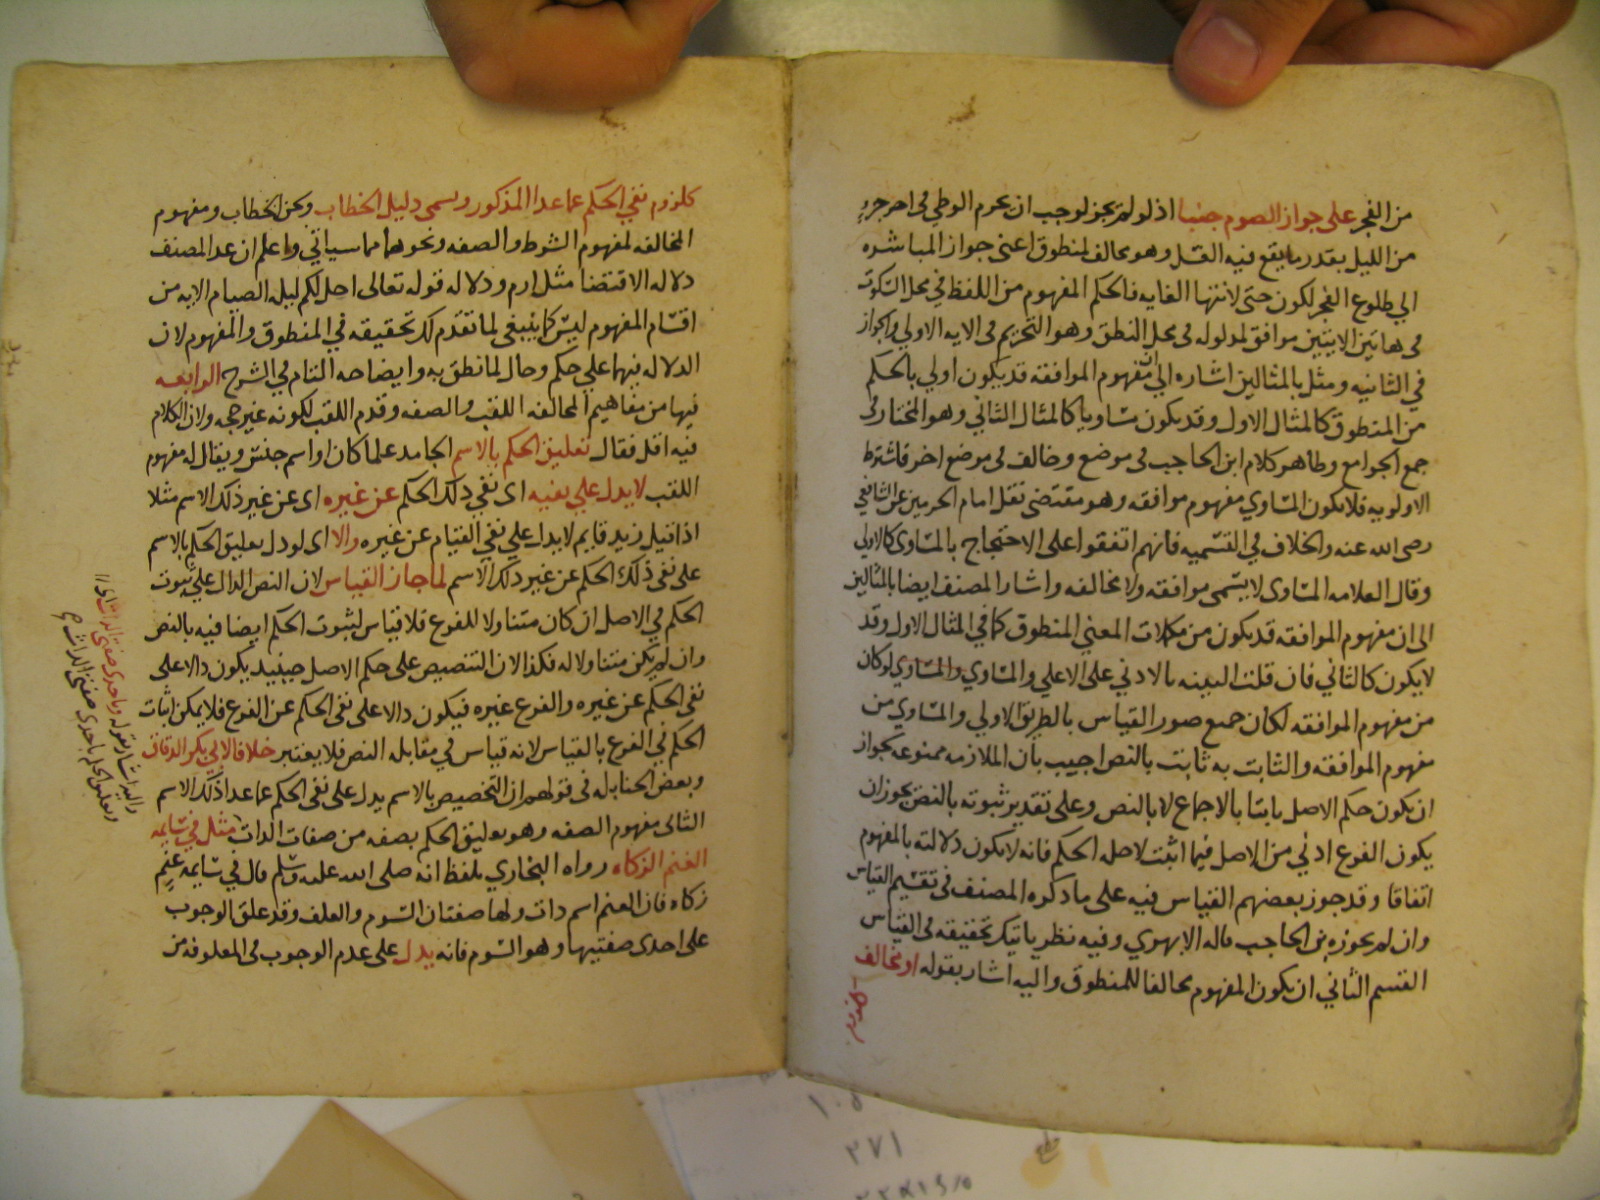 من الفجر على جواز الصوم جنبا اذ لو لم يجز لوجب ان يحرم الوطي في اخر جزء
من الليل بقدر ما يقع فيه الغسل وهو مخالف لمنطوق اعني جواز المباشره
الي طلوع الفجر لكون حتى لانتها الغايه فالحكم المفهوم من اللفظ في محل السكوت
في هاتين الايتين موافق لمدلوله في محل النطق وهو التحريم في الايه الاولي والجواز
في الثانيه ومثل بالمثالين اشاره الي ان مفهوم الموافقه قد يكون اولي بالحكم
من المنطوق كالمثال الاول وقد يكون مساويا كالمثال الثاني وهو المختار في
جمع الجوامع وظاهر كلام ابن الحاجب في موضع وخالف في موضع اخر فاشترط
الاولويه فلا يكون المساوي مفهوم موافقه وهو مقتضى نقل امام الحرمين عن الشافعي
رضى الله عنه والخلاف في التسميه فانهم اتفقوا على الاحتجاج بالمساوى كالاولي
وقال العلامه المساوى لا يسمى موافقه ولا مخالفه واشار المصنف ايضا بالمثالين
الى ان مفهوم الموافقه قد يكون من مكملات المعني المنطوق كما في المثال الاول وقد
لا يكون كالثاني فان قلت التنبيه بالادني على الاعلي والمساوي والمساوي لو كان
من مفهوم الموافقه لكان جميع صور القياس بالطريق الاولي والمساوي من
مفهوم الموافقه والثابت به ثابت بالنص اجيب بان الملازمه ممنوعه لجواز
ان يكون حكم الاصل ثابتا بالاجماع لا بالنص وعلى تقدير ثبوته بالنص يجوز ان
يكون الفرع ادني من الاصل فيما اثبت لاصله الحكم فانه لا يكون دلالته بالمفهوم
اتفاقا وقد جوز بعضهم القياس فيه على ما ذكره المصنف في تقسيم القياس
وان لم يجوزه ابن الحاجب قاله الابهري وفيه نظر ياتيك تحقيقه في القياس
القسم الثاني ان يكون المفهوم مخالفا للمنطوق واليه اشار بقوله او تخالف
كلزوم نفي الحكم عما عدا المذكور ويسمى دليل الخطاب ولحن الخطاب ومفهوم
المخالفه لمفهوم الشرط والصفه ونحوهما مما سياتي واعلم ان عد المصنف
دلاله الاقتضا مثل ارم ودلاله قوله تعالى احل لكم ليله الصيام الايه من
اقسام المفهوم ليس كما ينبغي لما تقدم لك تحقيقه في المنطوق والمفهوم لان
الدلاله فيهما علي حكم وحال لما نطق به وايضاحه التام في الشرح الرابعه
فيها من مفاهيم المخالفه اللقب والصفه وقدم اللقب لكونه غير حجه ولان الكلام
فيه اقل فقال تعليق الحكم بالاسم الجامد علما كان او اسم جنس ويقال له مفهوم
اللقب لا يدل علي نفيه اى نفي ذلك الحكم عن غيره اى عن غير ذلك الاسم مثلا
اذا قيل زيد قايم لا يدل علي نفي القيام عن غيره والا اى لو دل تعليق الحكم بالاسم
على نفى ذلك الحكم عن غير ذلك الاسم لما جاز القياس لان النص الدال علي ثبوت
الحكم في الاصل ان كان متناولا للفرع فلا قياس لثبوت الحكم ايضا فيه بالنص
وان لم يكن متناولا له فكذا لان التنصيص على حكم الاصل حينيذ يكون دالا على
نفى الحكم عن غيره والفرع غيره فيكون دالا على نفى الحكم عن الفرع فلا يمكن اثبات
الحكم في الفرع بالقياس لانه قياس في مقابله النص فلا يعتبر خلافا لابي بكر الدقاق
وبعض الحنابله في قولهم ان التخصيص بالاسم يدل على نفى الحكم عما عدا ذلك الاسم
الثاني مفهوم الصفه وهو تعليق الحكم بصفه من صفات الذات مثل في سايمه
الغنم الزكاه ورواه البخاري بلفظ انه صلى الله عليه وسلم قال في سايمه غنم
زكاه فان الغنم اسم ذات ولها صفتان السوم والعلف وقد علق الوجوب
على احدى صفتيها وهو السوم فانه يدل على عدم الوجوب في المعلوفه من
١٠٥
٢٧١